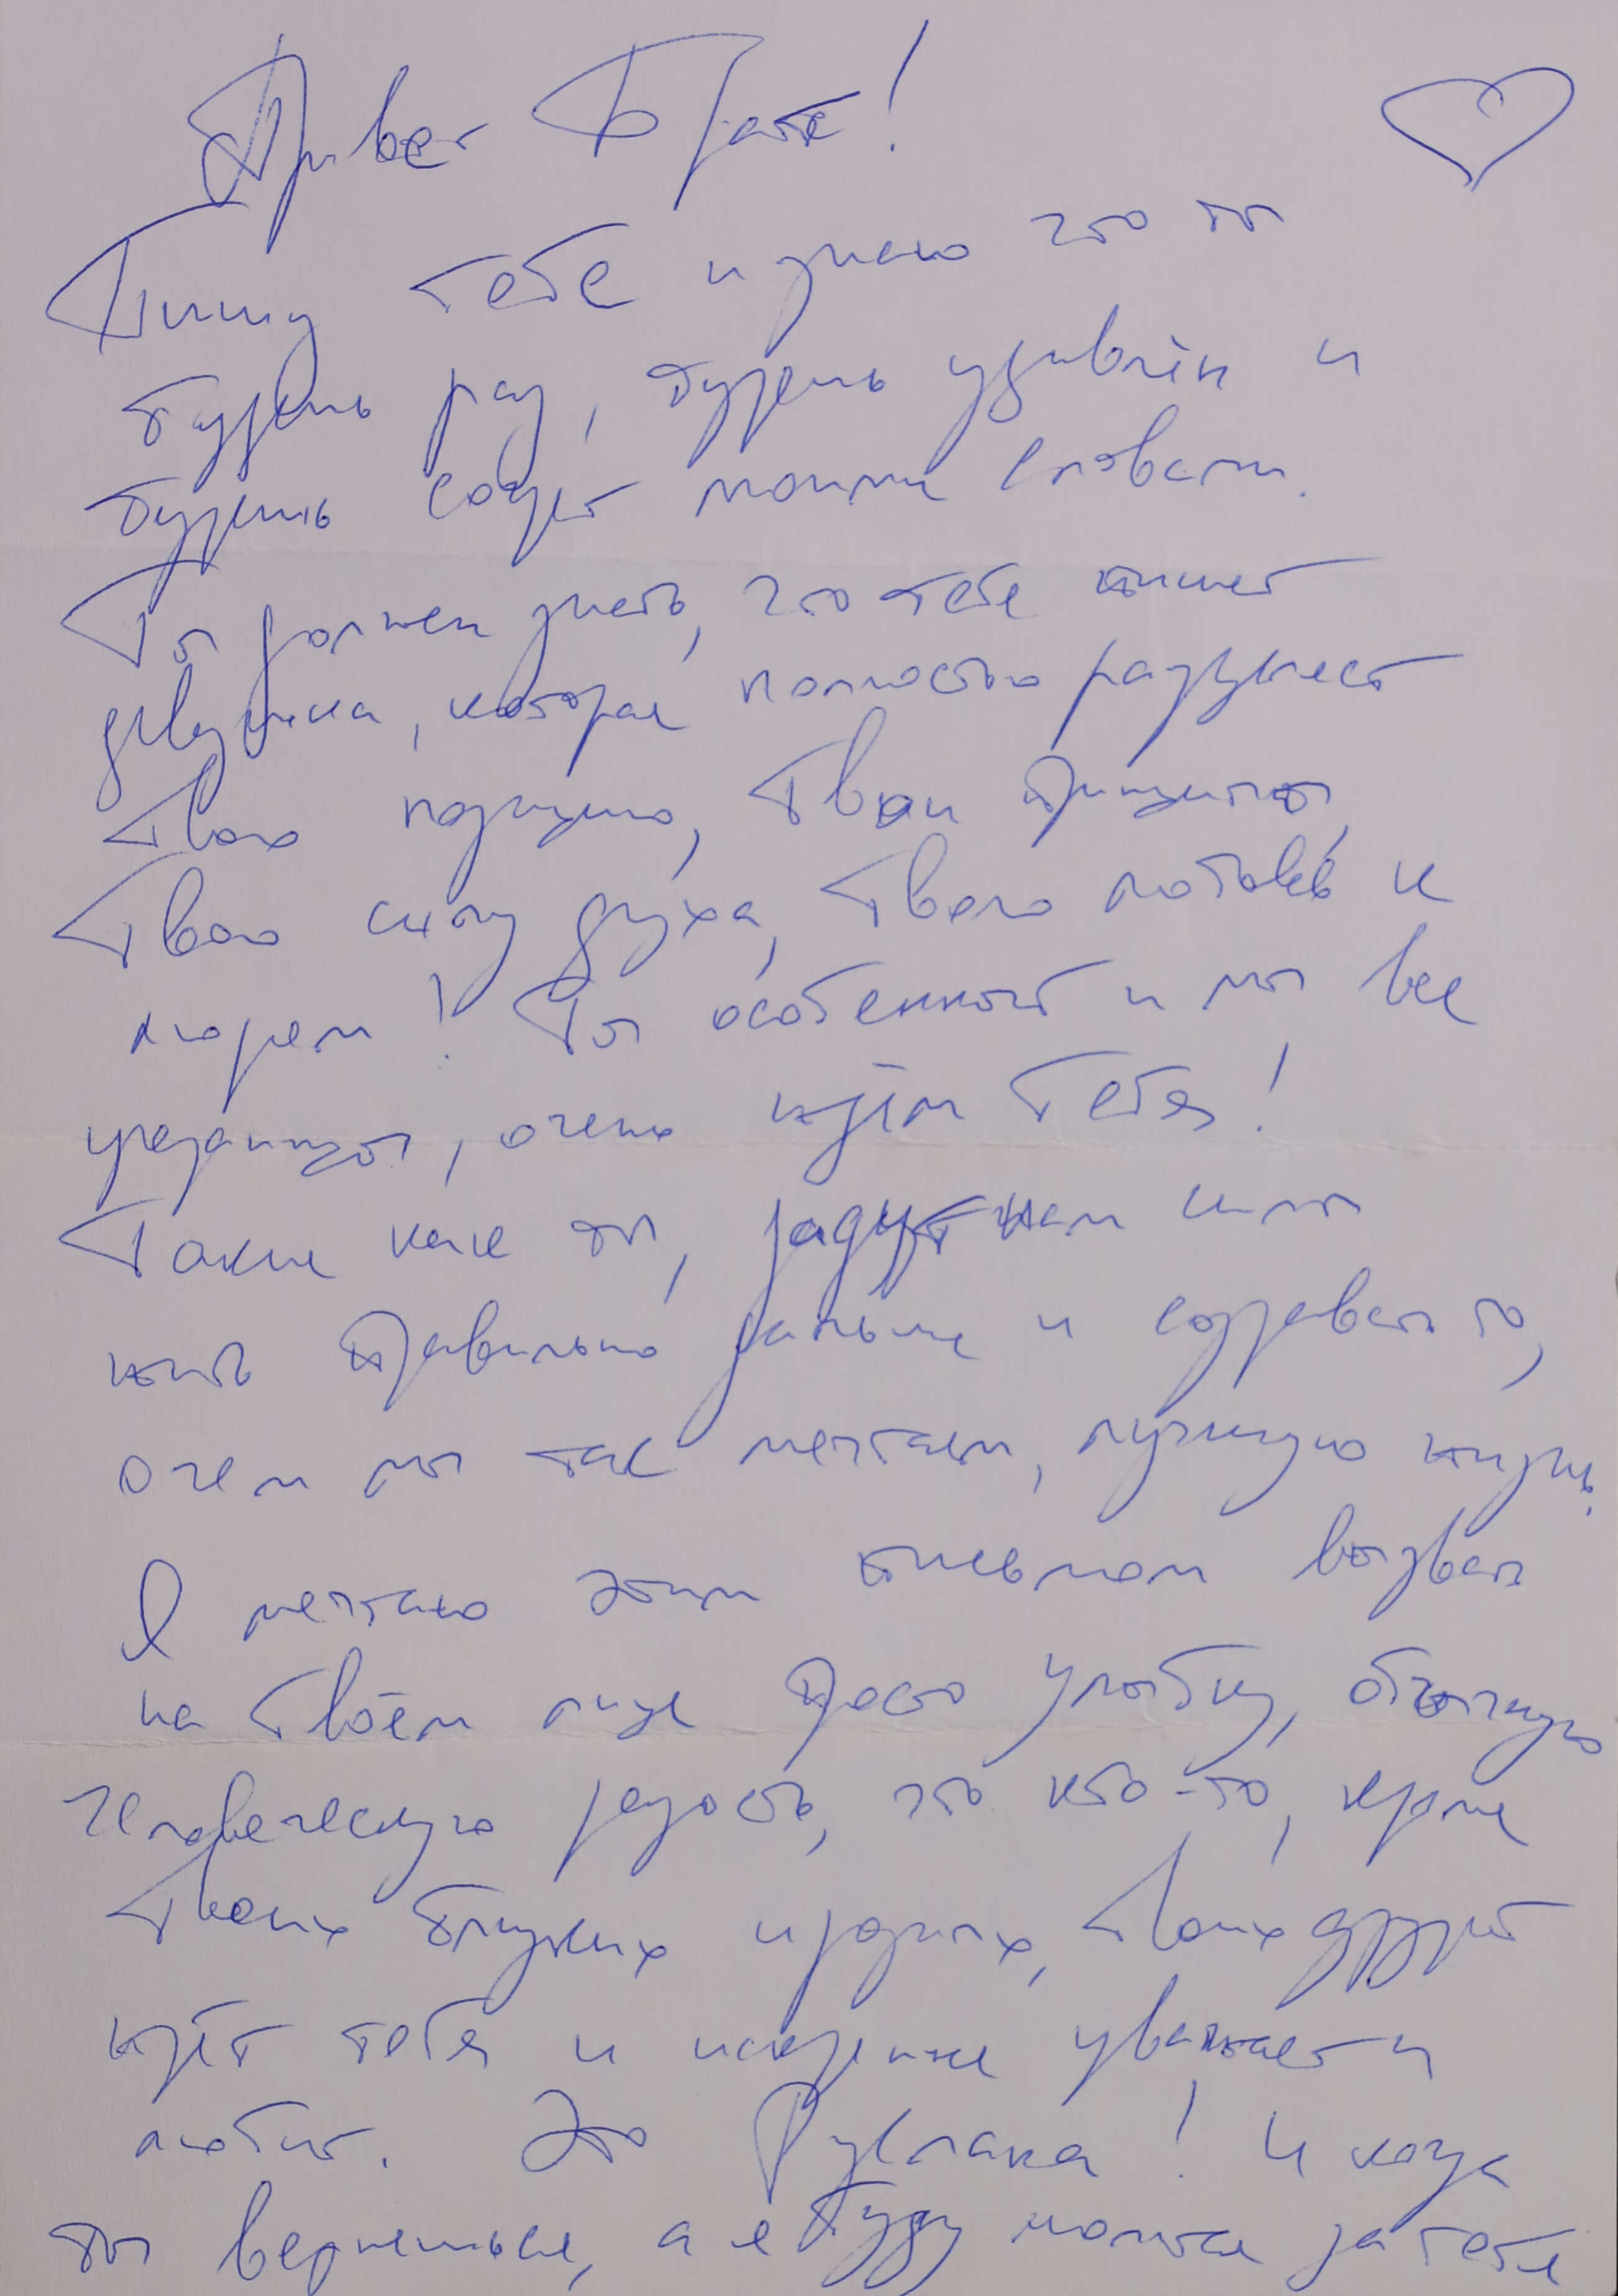 Привет Брат!
Пишу тебе и знаю что ты
будешь рад, будешь удивлён и
будешь согрет моими словами.
Ты должен знать, что тебе пишет
девушка, которая полностью разделяет
Твою позицию, Твои принципы,
Твою силу духа, Твою любовь к
людям! Ты особенный и мы все
уредалицы, очень ждём Тебя!
Такие как ты, зададут нам силы
жить правильно дальше и создавать то,
о чем мы так мечтаем, лучшую жизнь.
Я мечтаю этим письмом вызвать
на Твоём лице просто улыбку, обычную
человеческую радость, что кто-то, кроме
Твоих близких и родных, Твоих друзей
ждёт тебя и искренне уважает и
любит. Это Руслана! И когда
ты вернешься, а я буду молиться за тебя